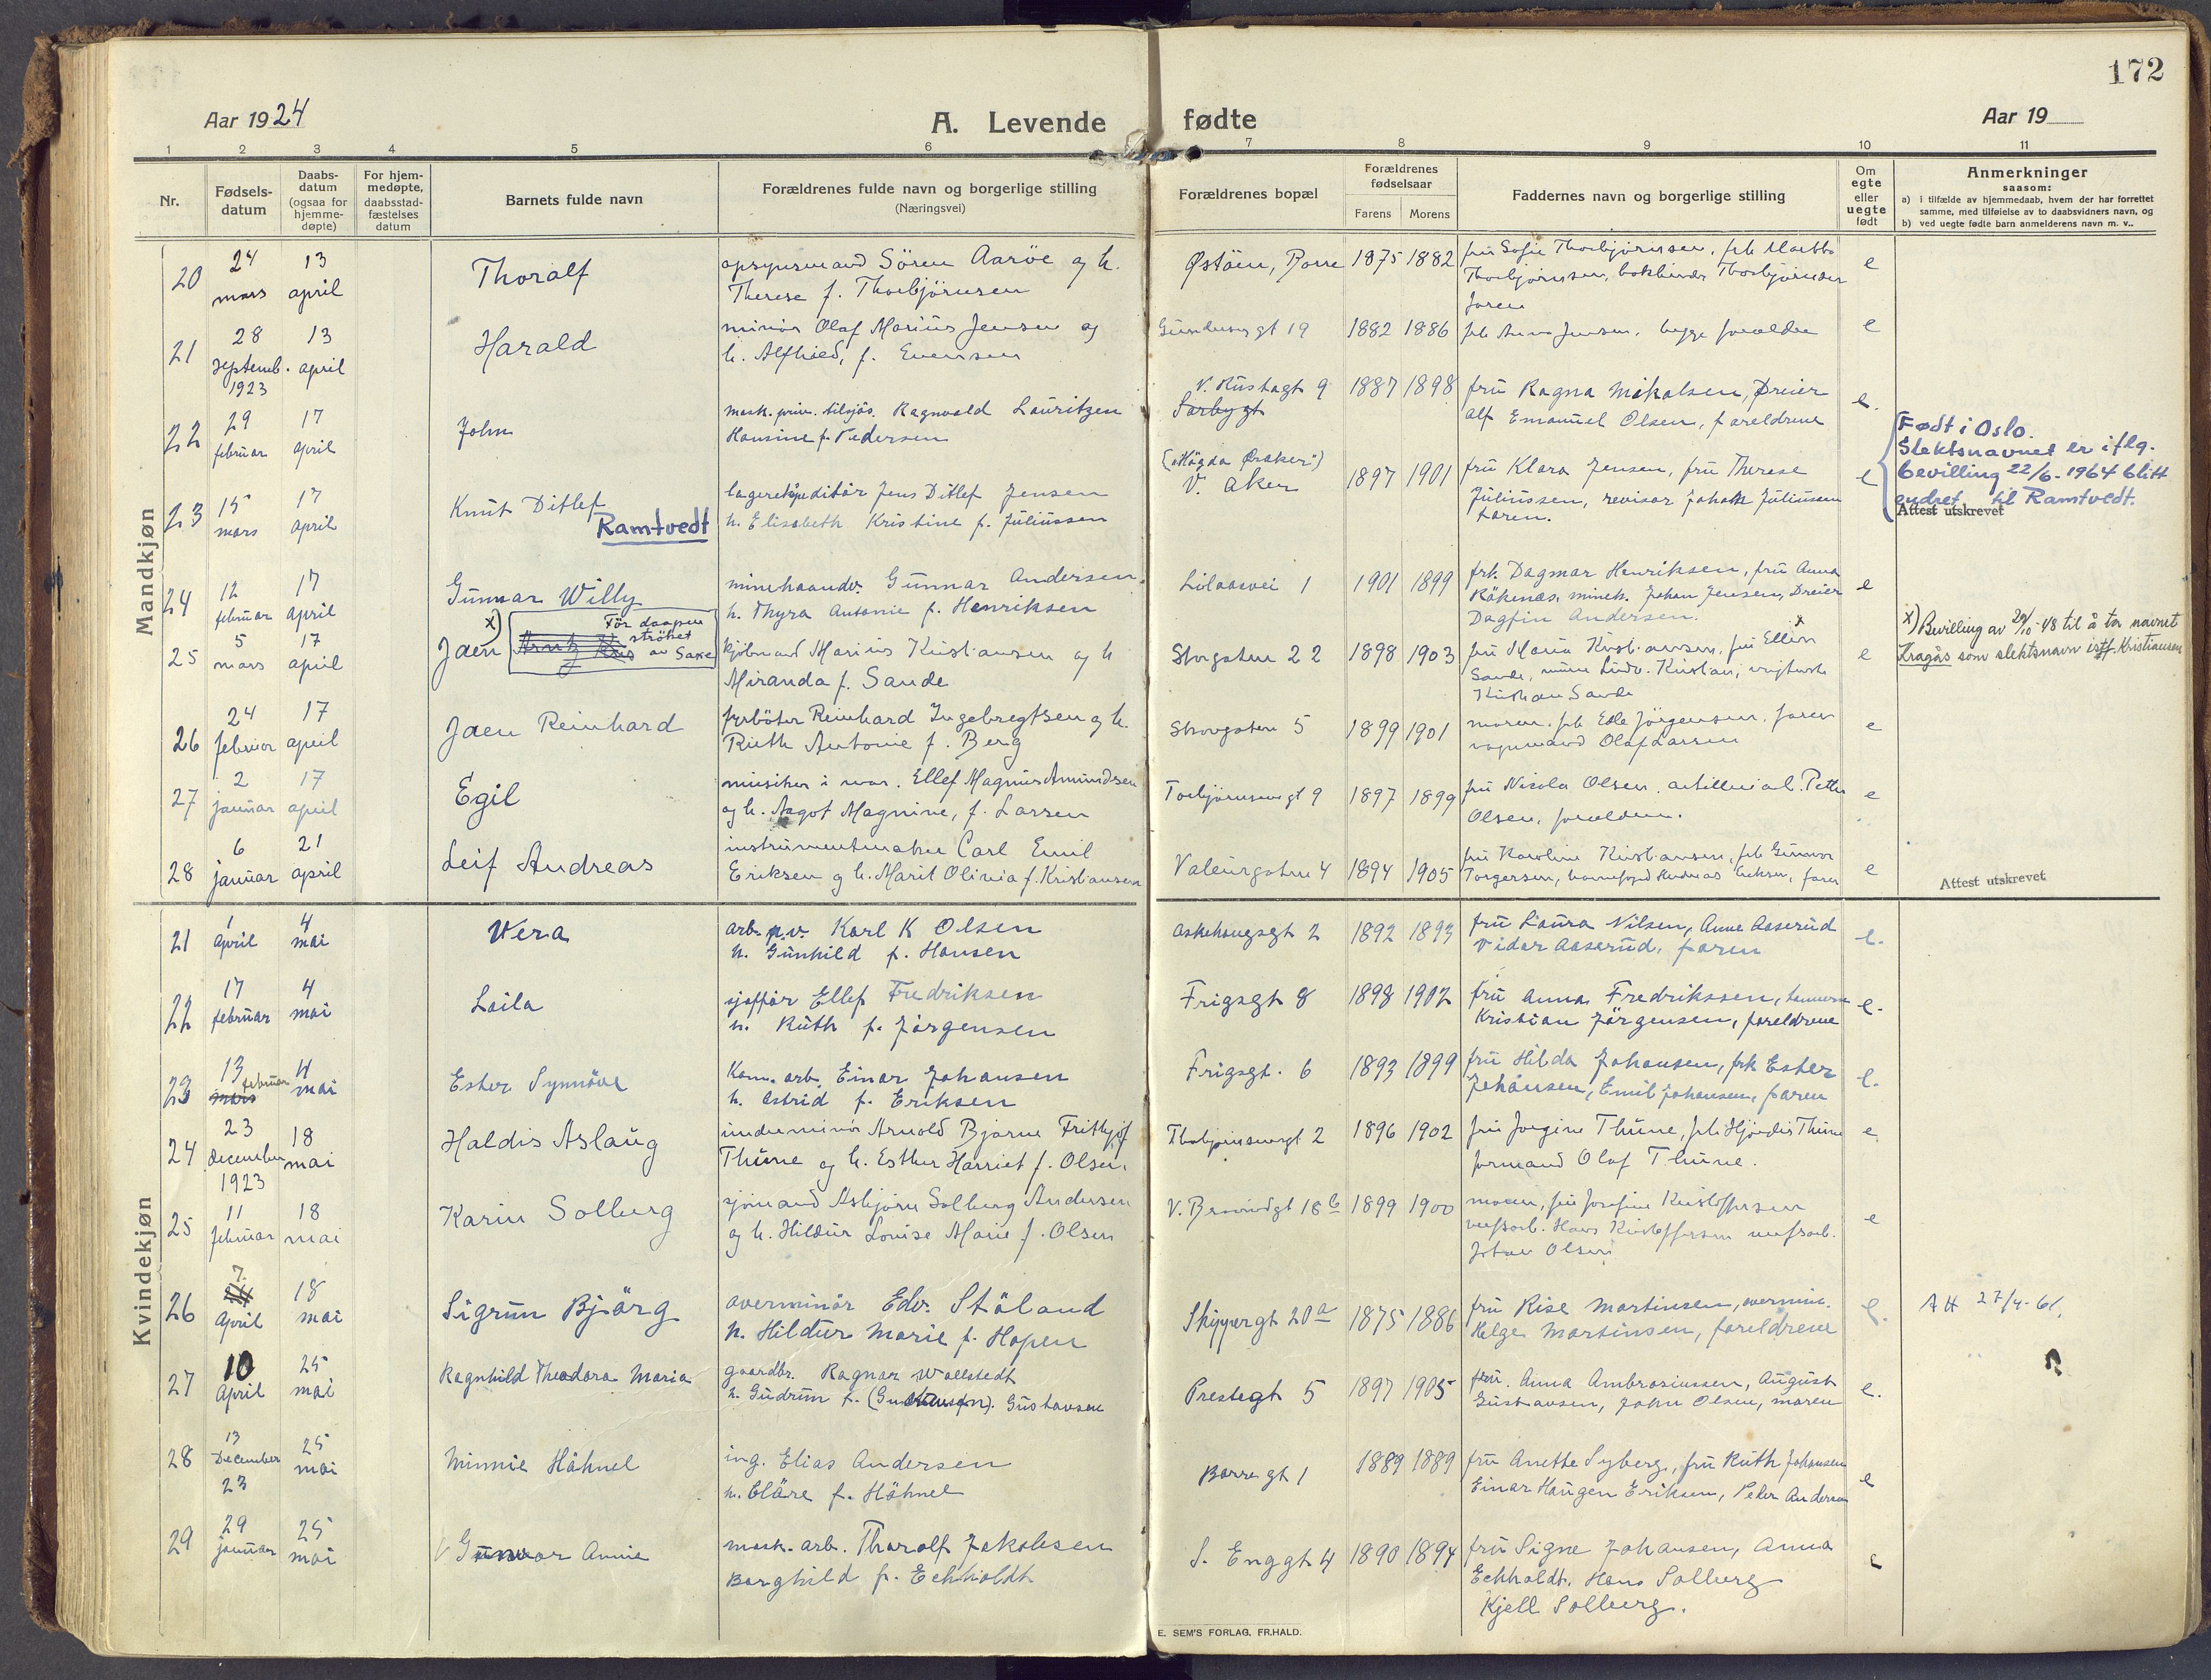 172
Aar 1924
A. Levende fødte
Aar 19
1 2 3 4 5 6 7 8 9 10 11
Nr.
Fødsels-
datum
Daabs-
datum
(ogsaa for
hjemme-
døpte)
For hjem-
medøpte,
daabsstad-
fæstelses
datum
Barnets fulde navn
Forældrenes fulde navn og borgerlige stilling
(Næringsvei)
Forældrenes bopæl
Forældrenes
fødselsaar
Farens Morens
Faddernes navn og borgerlige stilling
Om
egte
eller
uegte
født
Anmerkninger
saasom:
a) i tilfælde av hjemmedaab, hvem der har forrettet
samme, med tilføielse av to daabsvidners navn, og
b) ved uegte fødte barn anmelderens navn m. v..
Mandkjøn
20
24 mars
13 april
Thoralf
opsynsmand Sören Aaröe og h.
Therese f. Thorbjörnsen
Østöen, Borre
1875 1882
fru Sofie Thorbjörnsen, frk
Thorbjörnsen, bokbinder Thorbjörnsen
faren
e
21
28 septemb. 1923
13 april
Harald
minör Olaf Marius Jensen og
h. Alfhild, f. Evensen
Gundersensgt 19
1882 1886
frk Anna Jensen, begge forældre
e
22
29 februar
17 april
John
mask. priv. tilsjös. Ragnvald Lauritzen
Hansine f. Pedersen
V. Rustagt 9
Sarbygt
1887 1898
fru Ragna Mikalsen, Dreier
Alf Emanuel Olsen, foreldrene
e.
23
15 mars
17 april
Knut Ditlef
Ramtvedt
lagerekspeditör Jens Ditlef Jensen
h. Elisabeth Kristine f. Juliussen
V. Aker
1897 1901
fru Klara Jensen, fru Therese
Juliussen, revisor Johan Juliussen
faren.
e
Født i Oslo.
Slektsnavnet er iflg.
bevilling 22/6-1964 blitt
endret til Ramtvedt.
Attest utskrevet
24
12 februar
17 april
Gunnar Willy
minehaandv. Gunnar Andersen.
h. Thyra Antonie f. Henriksen
Lilaasvei 1
1901 1899
frk. Dagmar Henriksen, fru Anna
Rökenæs, minek. Johan Jensen, Dreier
Dagfin Andersen.
e
25
5 mars
17 april
x)
Jaen
För daapen
ströket
av Saxe
kjöbmand Marius Kristiansen og h
Miranda f. Sande
Storgaten 22
1898 1903
fru Maria Kristiansen, fru Ellen
Sande, Ludv. Kristian,
Kristian Sande
e
x) Bevilling av 29/10-48 til å ta navnet
Kragås som slektsnavn istf. Kristiansen
26
24 februar
17 april
Jaen Reinhard
fyrböter Reinhard Ingebregtsen og h.
Ruth Antonie f. Berg
Strovgaten 5
1899 1901
moren, frk Elle Jörgensen, faren
vognmand Olaf Larsen
e
27
2 januar
17 april
Egil
musiker i mar. Ellef Magnus Amundsen
og h. Aagot Magnine, f. Larsen
Torbjörnsensgt 9
1897 1899
fru Nicola Olsen, Petter
Olsen, forældrene.
e
28
6 januar
21 april
Leif Andreas
instrumentmaker Carl Emil
Eriksen og h. Marit Olivia f. Kristiansen
Valeurgaten 4
1894 1905
fru Karoline Kristiansen, frk Gunvor
Torgersen, havnefoged Andreas Eriksen, faren
e
Attest utskrevet
Kvindekjøn
21
1 April
4 mai
Wera
arb. p.v. Karl K Olsen
h. Gunhild f. Hansen
Askehaugsgt 2
1892 1893
fru Laura Nilsen, Anne Aaserud
Vidar Aaserud, faren
e.
22
17 februar
4 mai
Laila
sjafför Ellef Fredriksen
h. Ruth f. Jörgensen
Frigsgt 8
1898 1902
fru Anna Fredrikssen,
Kristian Jörgensen, foreldrene
e.
23
13 februar
mars
4 mai
Ester Synnöve
Kom. arb. Einar Johansen
h. Astrid f. Eriksen
Frigsgt. 6
1893 1899
fru Hilda Johansen, frk Ester
Johansen, Emil Johansen, faren
e.
24
23 december 1923
18 mai
Haldis Aslaug
underminör Arnold Bjarne Frithjof
Thune og h. Esther Harriet f. Olsen.
Thorbjörnsensgt 2
1896 1902
fru Jorgine Thune, frk Hjördis Thune
formand Olaf Thune.
e.
25
11 februar
18 mai
Karin Solberg
sjömand Asbjörn Solberg Andersen
og h. Hildur Louise Marie f. Olsen
V. Brarudgt 18b
1899 1900
moren, fru Josefine Kristoffersen
verftsarb. Hans Kristoffersen verftsarb.
Johan Olsen
e
26
7. April
18 mai
Sigrun Björg
overminör Edv. Stöland
h. Hildur Marie f. Hopen
Skippergt 20a
1875 1886
fru Rise Martinsen, overmin.
Helge Martinsen, foreldrene
e.
AH 27/4-61.
27
10 April
25 mai
Ragnhild Theodora Maria
gaardbr. Ragnar Wallstedt
h. Gudrun f. Gustavsen
Prestegt 5
1897 1905
fru. Anna Ambrosiussen, August
Gustavsen, John Olsen, moren
e.
28
13 December 23
25 mai
Minnie Hähnel
ing. Elias Andersen
h. Cläre f. Hähnel
Borregt 1
1889 1889
fru Anette Syberg, fru Ruth Johansen
Einar Haugen Eriksen, Peder Andersen
e
29
29 januar
25 mai
Gunvor Annie
mask. arb. Thorolf Jakobsen
Borghild f. Eckholdt
S. Enggt 4
1890 1894
fru Signe Johansen, Anna
Eckholdt, Hans Solberg
Kjell Solberg.
e
E. SEM'S FORLAG, FR.HALD.